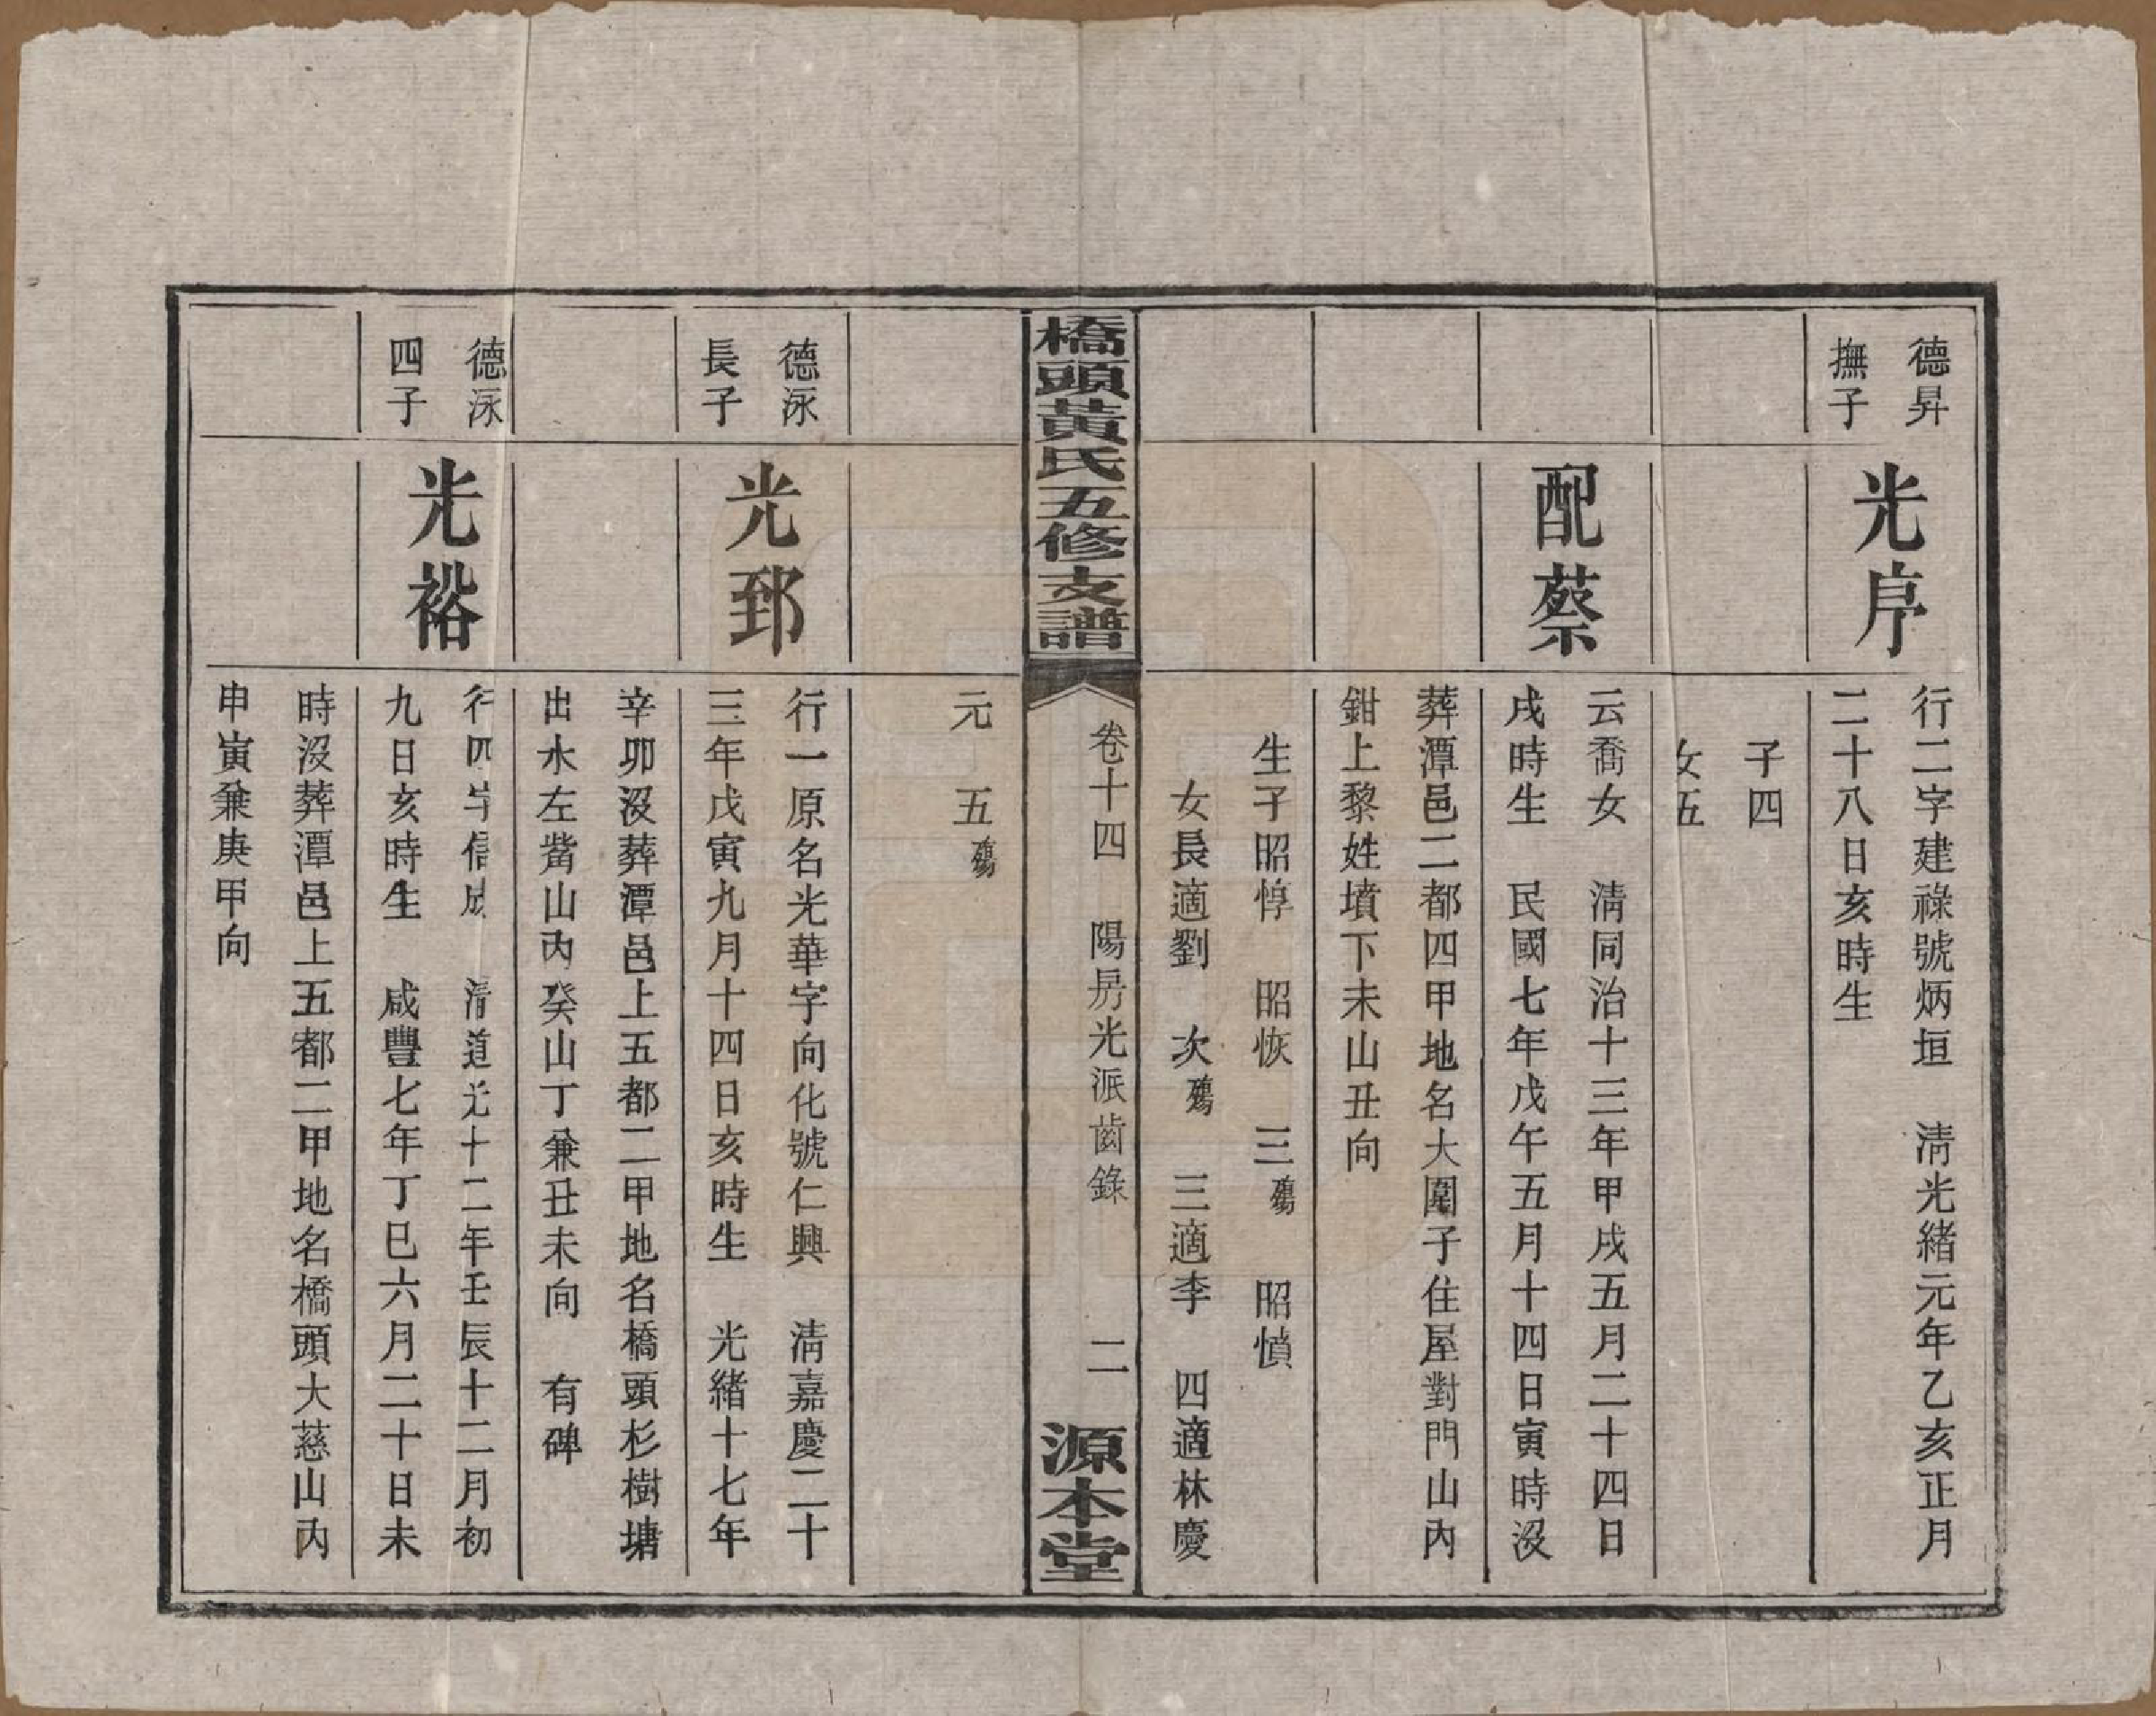 德昇
撫子
光序
行二字建祿號炳垣　清光緒元年乙亥正月
二十八日亥時生
子四
女五
配蔡
云喬女　清同治十三年甲戌五月二十四日
戌時生　民國七年戊午五月十四日寅時沒
葬潭邑二都四甲地名大圍子住屋對門山內
鉗上黎姓墳下未山丑向
生子昭惇　昭恢　三殤　昭憤
女長適劉　次殤　三適李　四適林慶
橋頭黃氏五修支譜
卷十四　陽房光派齒錄　二
源本堂
元　五殤
德泳
長子
光郅
行一原名光華字向化號仁興　清嘉慶二十
三年戊寅九月十四日亥時生　光緒十七年
辛卯沒葬潭邑上五都二甲地名橋頭杉樹塘
出水左觜山內癸山丁兼丑未向　有碑
德泳
四子
光裕
行四字信成　清道光十二年壬辰十二月初
九日亥時生　咸豐七年丁巳六月二十日未
時沒葬潭邑上五都二甲地名橋頭大慈山內
申寅兼庚甲向